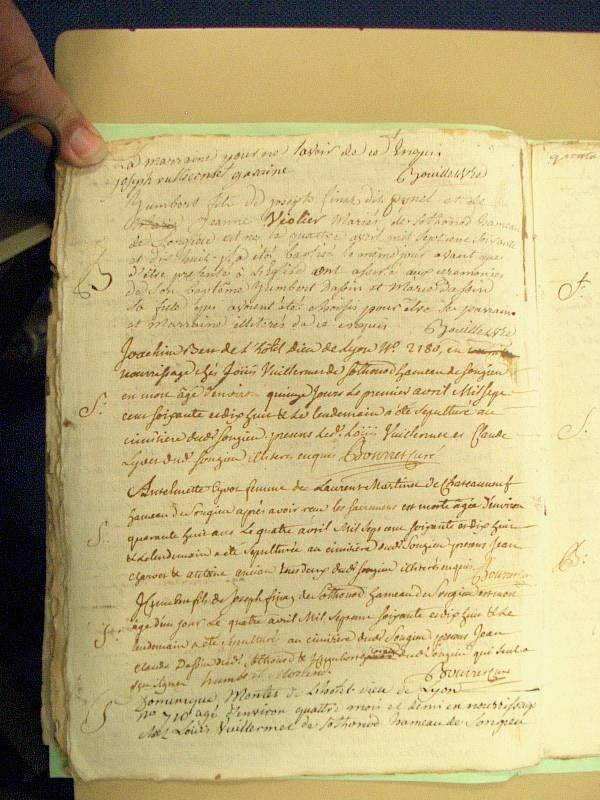 La marraine pour ne savoir de ce Enquis.
joseph rullecomte garrine Bouillet vre
humbert fils de joseph finaz dit et de
Jeanne Violier Mariés de Sothonod hameau
de Songieu est né le quatre avril mil sept cent soixante
et dix huit et a été baptisé le même jour avant que
d'être présenté à l'église ont assisté aux ceremonies
de son baptême humbert dassin et marie dassin
sa fille qui avoient été choisis pour être ses parrain
et marraine illiterés de ce enquis Bouillet vre
B
Joachim Bert de l'hôtel dieu de Lyon N.° 2180, en
nourrissage chés Loüis Vuillermet de Sothonod hameau de Songieu
est mort âgé d'environ quinze jours le premier avril Mil sept
cent soixante et dix huit & le lendemain a été sepulturé au
cimitière dudt Songieu presens led. Loüis Vuillermet et Claude
dudt Songieu illiterés enquis Bourret curé
S.
Antelmette femme de Laurent Martinet de Chateauneuf
hameau de Songieu après avoir reçu les sacremens est morte agée d'environ
quarante huit ans le quatre avril Mil sept cent soixante et dix huit
& le lendemain a été sepulturée au cimitière dudt Songieu presens Jean
charvet & antoine tous deux dudt Songieu illiterés enquis Bourret curé
S.
humbert fils de Joseph finaz de Sothonod hameau de Songieu est mort
agé d'un jour le quatre avril Mil sept cent soixante et dix huit & le
lendemain a été sepulturé au cimitière dudt Songieu presens Jean
Claude Dassin dudt Sothonod & humbert dudt Songieu qui seul a
signé humbert Bourret curé
S.
Dominique Montet de l'hotel dieu de Lyon
n° 710 agé d'environ quatre mois et demi en nourrissage
chez Louis Vuillermet de Sothonod hameau de Songieu
S
S.
S.
B.